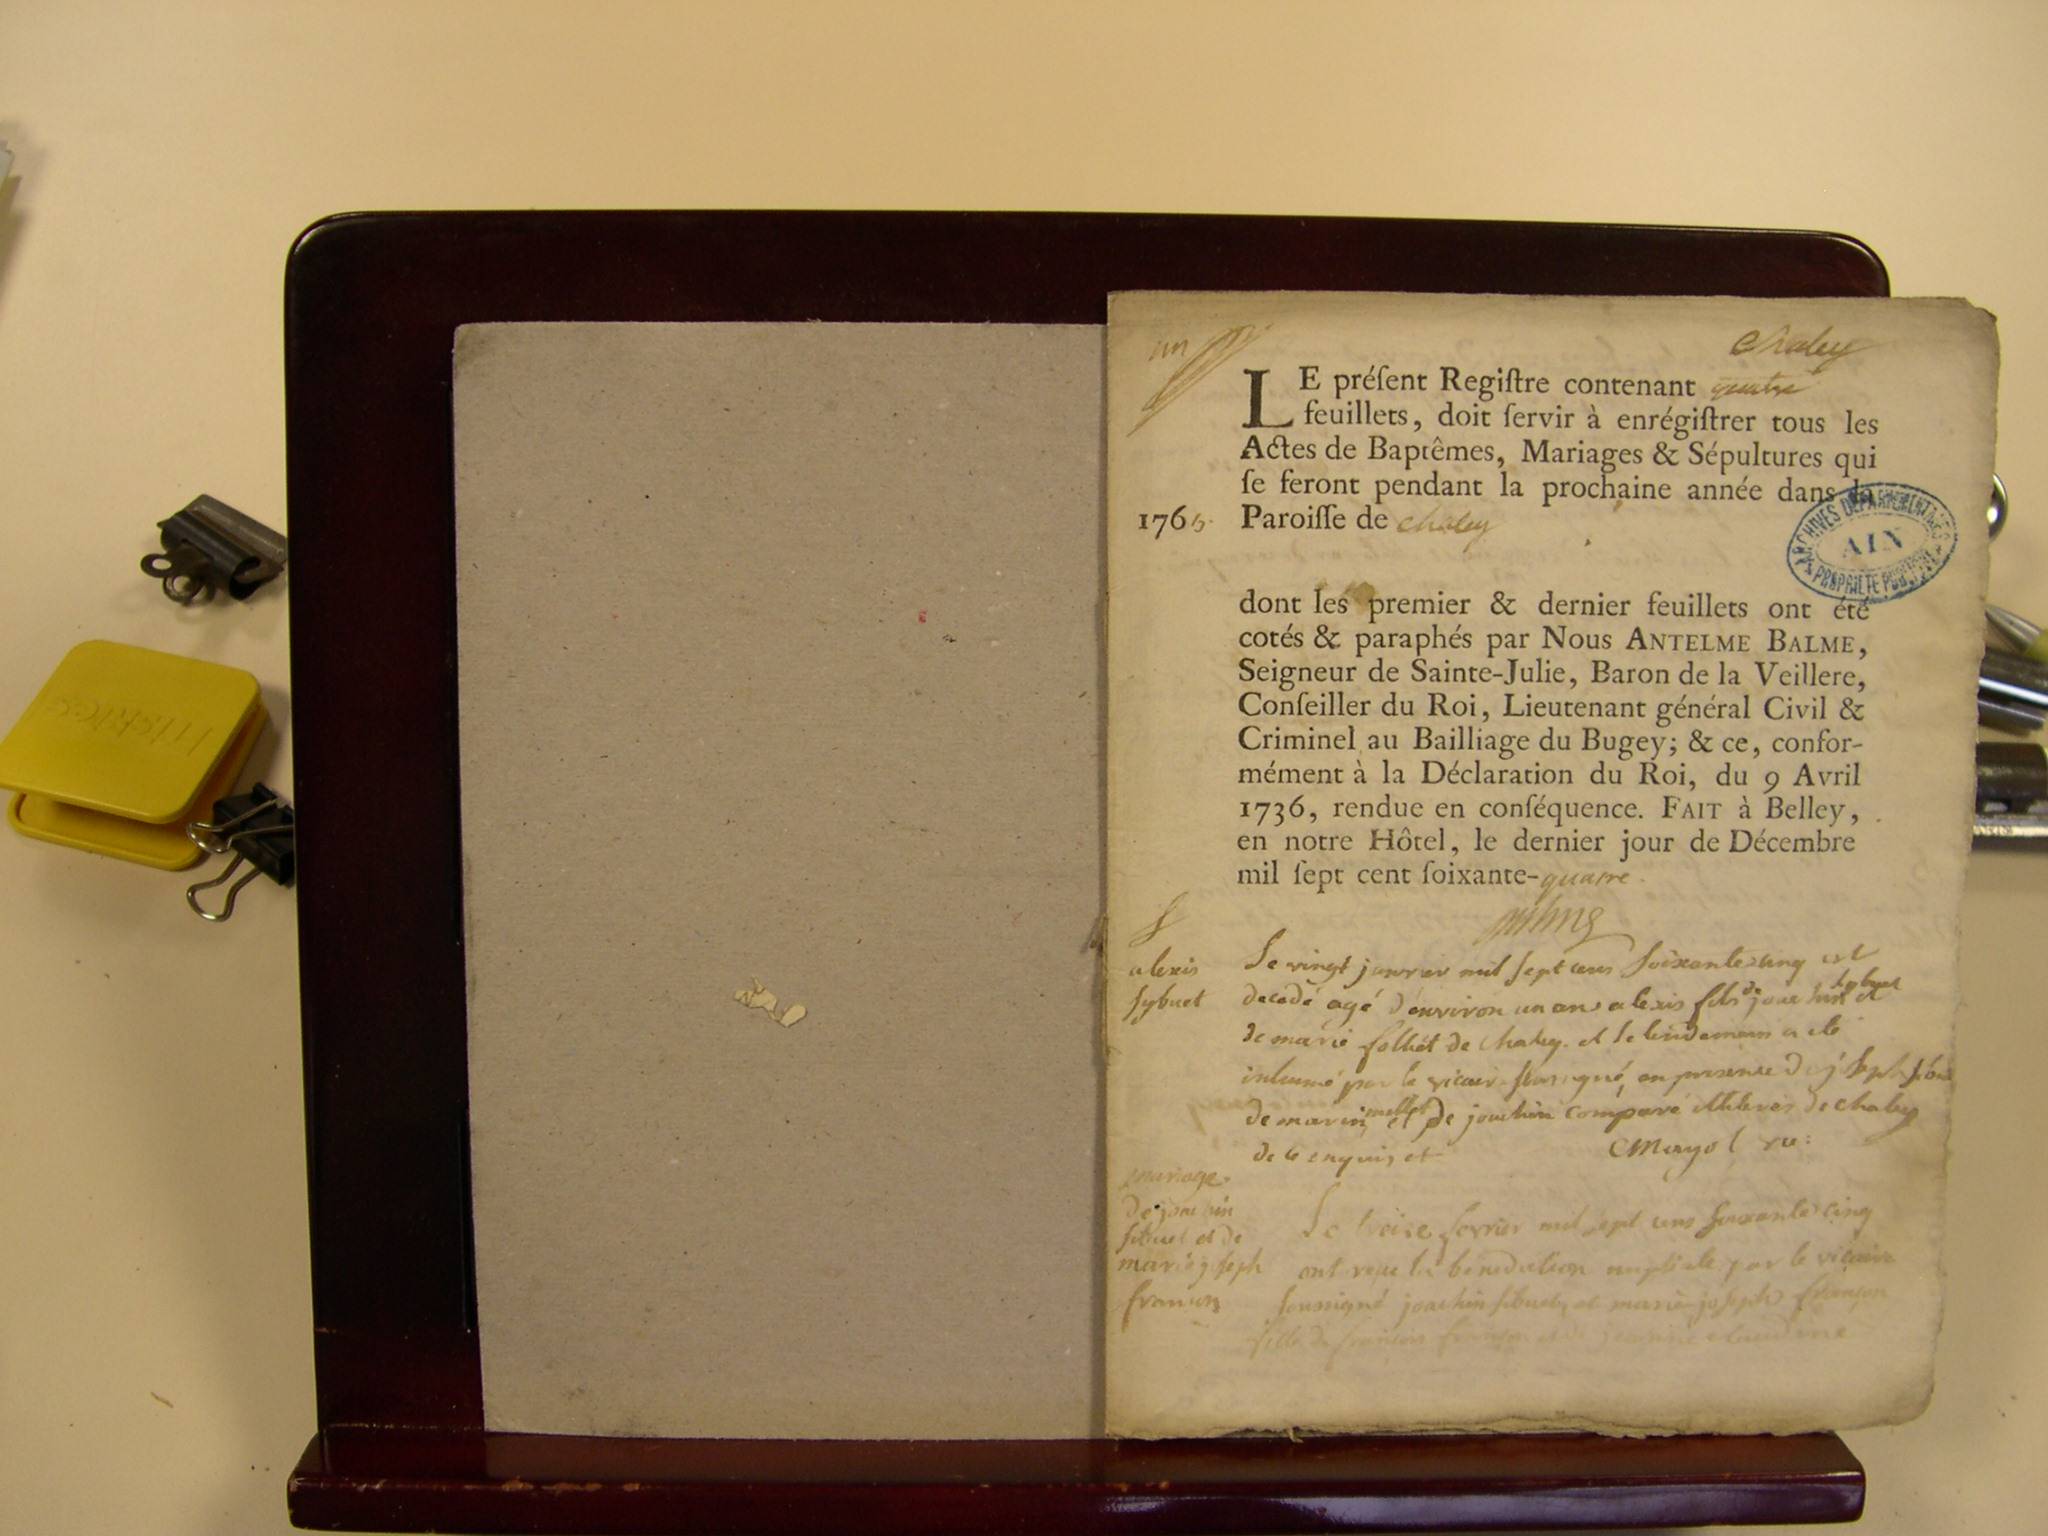 un
Chaley
LE préſent Regiſtre contenant quatre
feuillets, doit ſervir à enrégiſtrer tous les
Actes de Baptêmes, Mariages & Sépultures qui
ſe feront pendant la prochaine année dans la
1765. Paroiſſe de chaley
ARCHIVES DÉPARTEMENTALES
AIN
PROPRIÉTÉ PUBLIQUE
dont les premier & dernier feuillets ont été
cotés & paraphés par Nous ANTELME BALME,
Seigneur de Sainte-Julie, Baron de la Veillere,
Conſeiller du Roi, Lieutenant général Civil &
Criminel au Bailliage du Bugey; & ce, confor-
mément à la Déclaration du Roi, du 9 Avril
1736, rendue en conſéquence. FAIT à Belley,
en notre Hôtel, le dernier jour de Décembre
mil ſept cent ſoixante-quatre.
alexis
sybuet
Le vingt janvier mil sept cens soixante cinq est
decedé agé d'environ un ans alexis fils de joachin sybuet et
de marie folliet de chaley. et le lendemain a ete
inhumé par le vicaire soussigné, en presence de joseph
de marin et de joachin comparé illiteres de chaley
de ce enquis et
Mayol vic:
mariage
de joachin
sibuet et de
marie joseph
françon
Le treize fevrier mil sept cens soixante cinq
ont reçu la benediction nuptiale par le vicaire
soussigné joachin sibuet, et marie joseph françon
fille de françois françon et de jeanne claudine